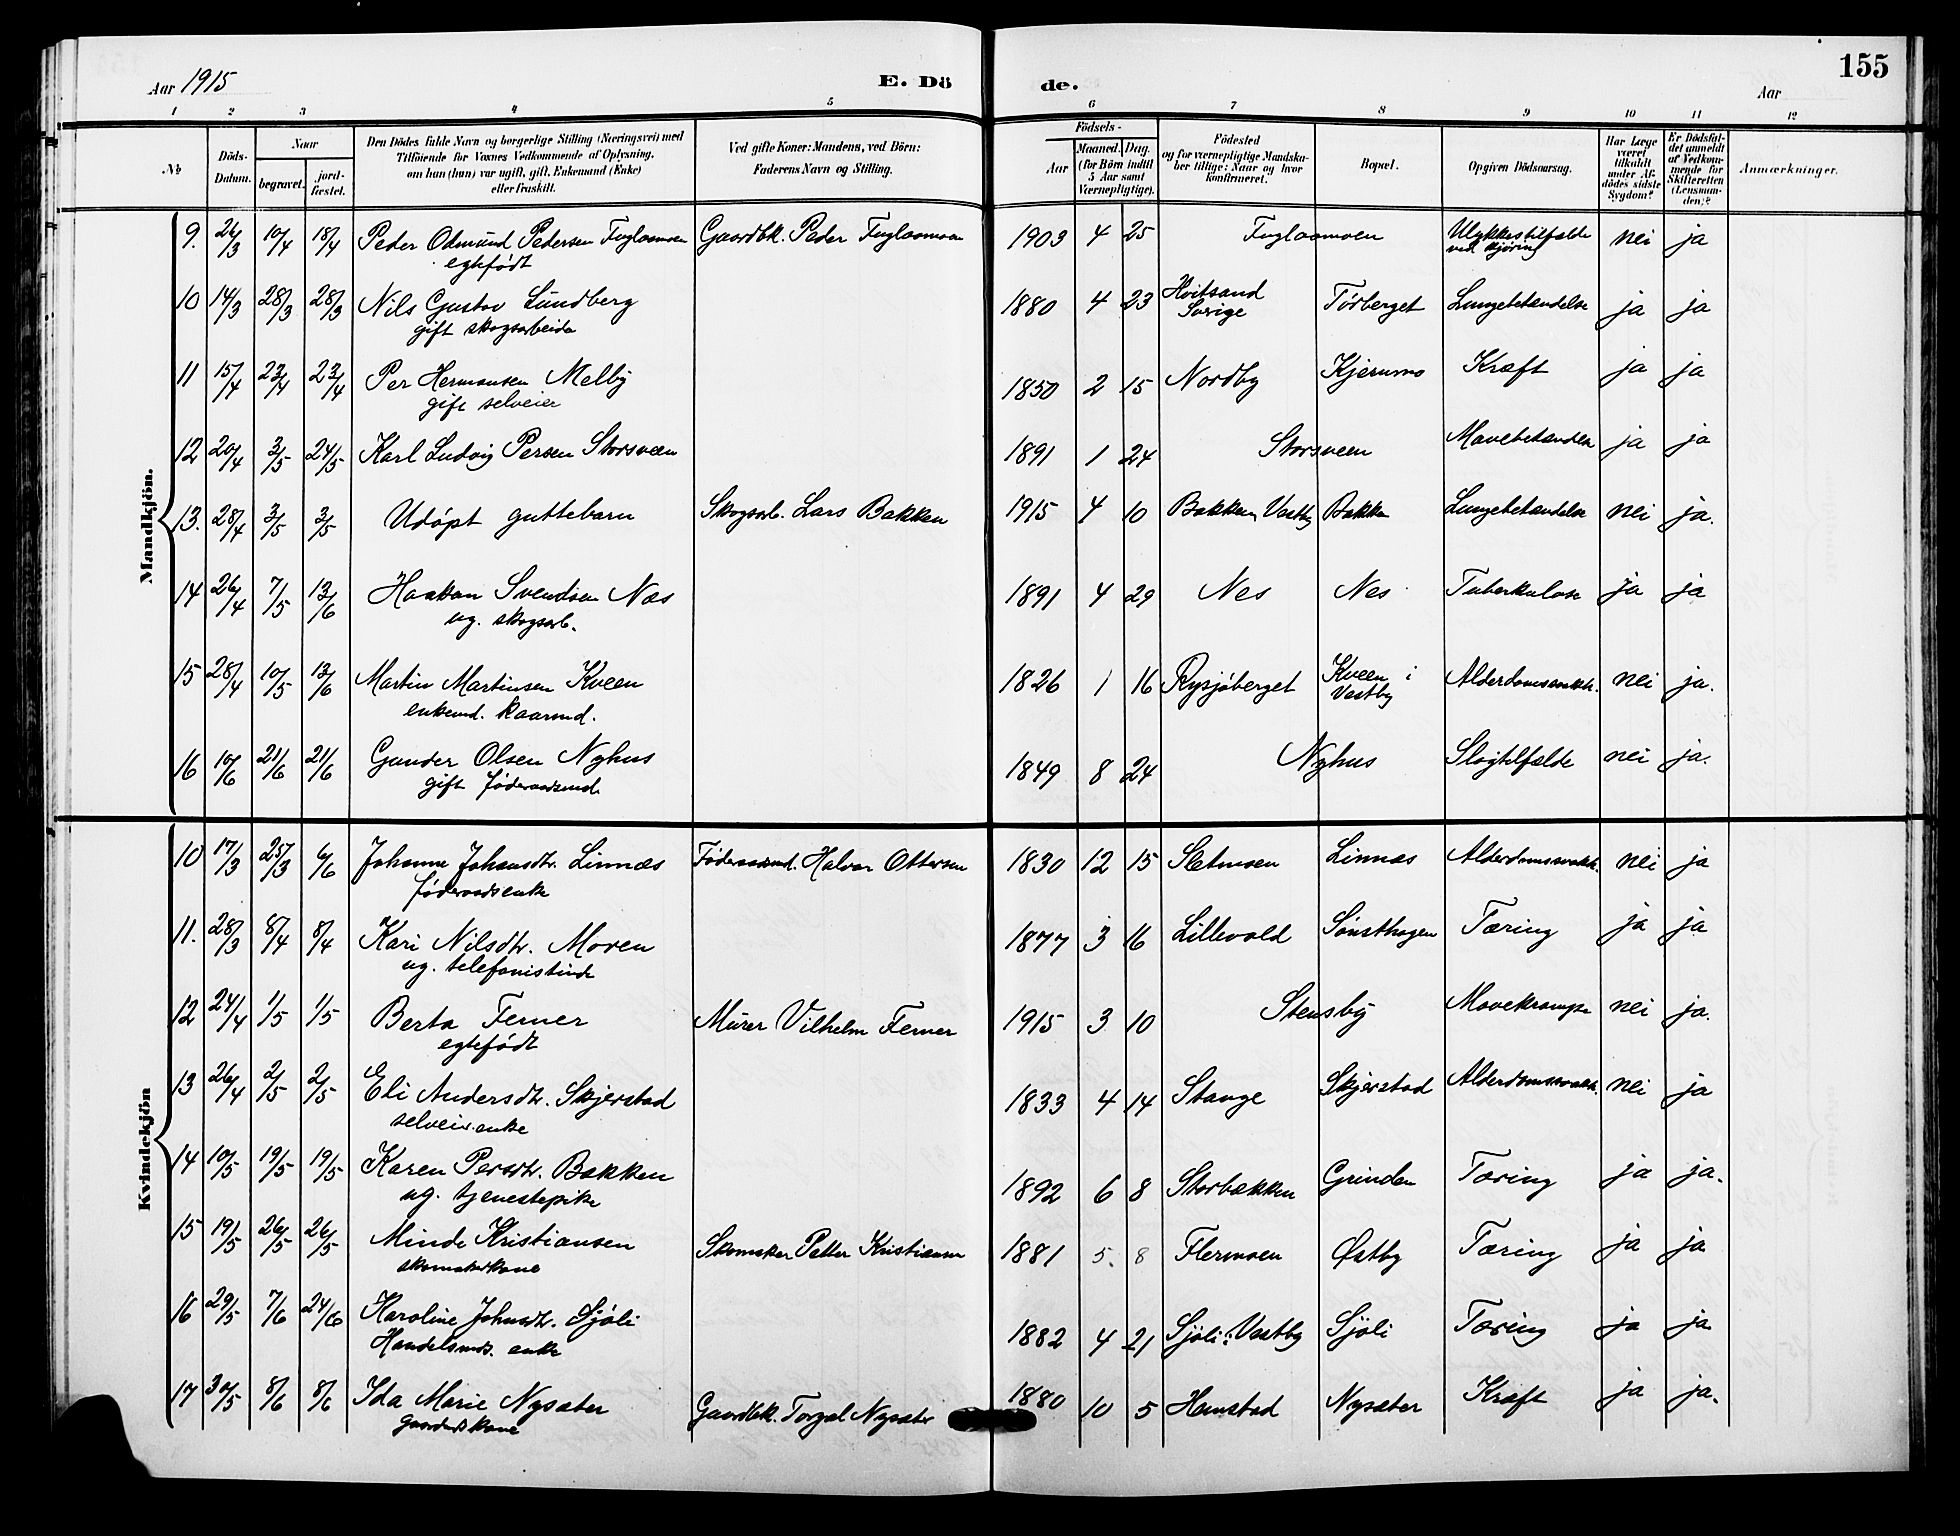 155
Aar 1915
E. Dö
de.
Aar
1 2 3 4 5 6 7 8 9 10 11 12
№
Döds-
Datum.
Naar
begravet.
jord-
fæstet.
Den Dödes fulde Navn og borgerlige Stilling (Næringsvei) med
Tilföiende for Voxnes Vedkommende af Oplysning,
om han (hun) var ugift, gift, Enkemand (Enke)
eller fraskilt.
Ved gifte Koner: Mandens, ved Börn:
Faderens Navn og Stilling.
Födsels-
Aar
Maaned. Dag.
(for Börn indtil
5 Aar samt
Værnepligtige).
Födested
og for værnepligtige Mandska-
ber tillige: Naar og hvor
konfirmeret.
Bopæl.
Opgiven Dödsaarsag.
Har Læge
været
tilkaldt
under Af-
dödes sidste
Sygdom?
Er Dödsfal-
det anmeldt
af Vedkom-
mende for
Skifteretten
(Lensman-
den)?
Anmærkninger.
Mandkjön.
9. 26/3 10/4 18/4 Peder Odmund Pedersen Fuglaamoen Gaardbk. Peder Fuglaamoen 1903 4 25 Fuglaamoen Ulykkestilfælde nei ja
egtefödt ved kjøring
10 14/3 28/3 28/3 Nils Gustav Lundberg 1880 4 23 Hvitsand Tørberget Lungebetændelse ja ja
gift skogsarbeider Sverige
11 15/4 23/4 23/4 Per Hermansen Melby 1850 2 15 Nordby Kjerumo Kræft ja ja
gift selveier
12 20/4 3/5 24/5 Karl Ludvig Persen Storsveen 1891 1 24 Storsveen Mavebetændelse ja ja
13. 28/4 3/5 3/5 Udöpt guttebarn Skogsarb. Lars Bakken 1915 4 10 Bakken, Vestby Bakken Lungebetændelse nei ja.
14 26/4 7/5 13/6 Haakon Svendsen Næs 1891 4 29 Nes Nes Tuberkulose ja ja
ug. skogsarb.
15 28/4 10/5 13/6 Martin Martinsen Kveen 1826 1 16 Rysjøberget Kveen i Alderdomssvakh. nei ja.
enkemd. kaarmd. Vestby
16 10/6 21/6 21/6 Gunder Olsen Nyhus 1849 8 24 Nyhus Slagtilfælde nei ja.
gift föderaadsmd.
Kvindekjön
10 17/3 25/3 6/6 Johanne Johansdtr. Linnæs Föderaadsmd. Halvor Ottersen 1830 12 15 Sætmoen Linnæs Alderdomssvakh. nei ja
föderaadsenke
11. 28/3 8/4 8/4 Kari Nilsdtr. Moren 1877 3 16 Lillevold Sønsthagen Tæring ja ja
ug. telefonistinde
12 24/4 1/5 1/5 Berta Ferner Murer Vilhelm Ferner 1915 3 10 Stensby Mavekrampe nei ja.
egtefödt
13 26/4 2/5 2/5 Eli Andersdtr. Skjerstad 1833 4 14 Stange Skjerstad Alderdomssvakh. nei ja
selveier.enke
14 10/5 19/5 19/5 Karen Persdtr. Bakken 1892 6 8 Storbækken Grinden Tæring ja ja.
ug. tjenestepike
15 19/5 26/5 26/5 Minda Kristiansen Skomaker Petter Kristiansen 1881 5. 8 Flermoen Østby Tæring ja ja
skomakerkone
16 29/5 7/6 24/6 Karoline Johnsdtr. Sjöli 1882 4 21 Sjöli i Vestby Sjöli Tæring ja ja.
Handelsmds. enke
17 30/5 8/6 8/6 Ida Marie Nysæter Gaardbk. Torgal Nysæter 1880 10 5 Hemstad Nysæter Kræft ja ja.
gaardbrkone